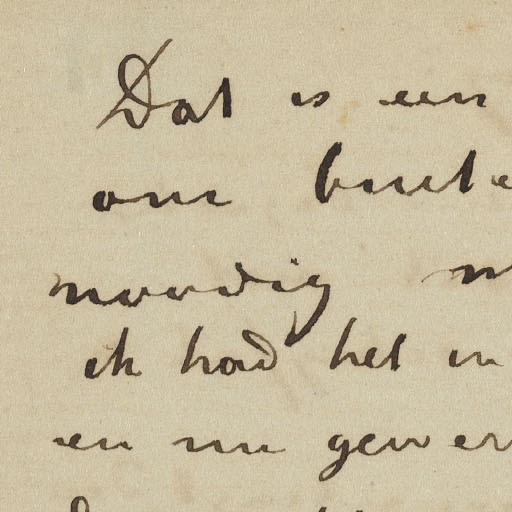 Dat is een
om buite
noodig
ik had het in
en nu gewer